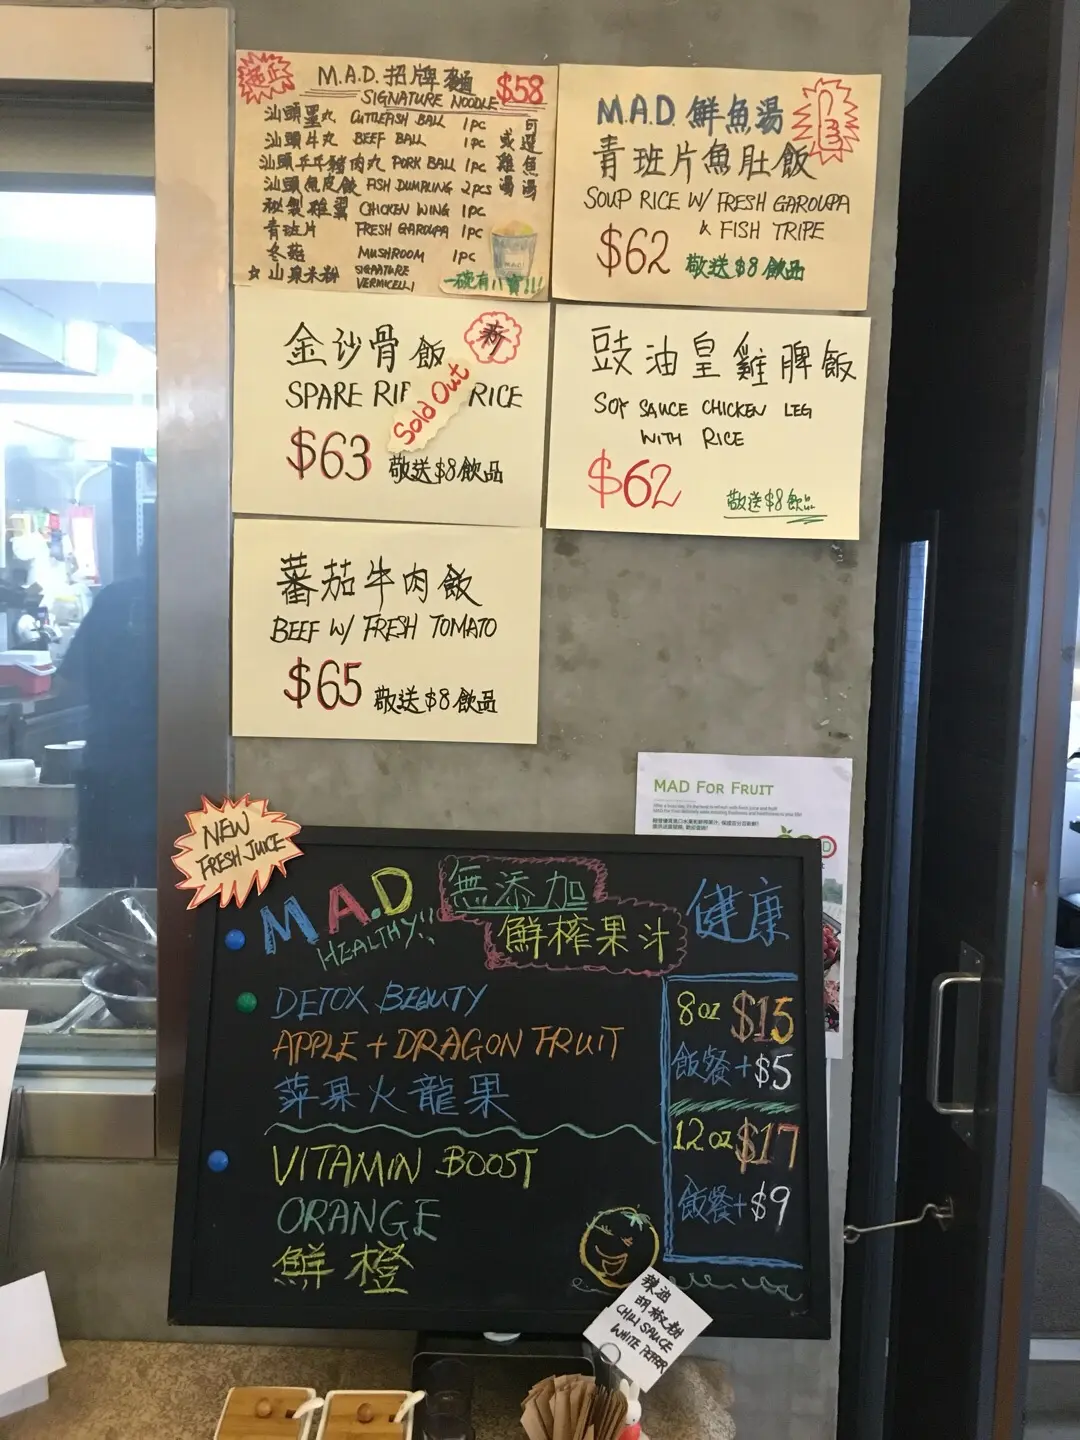 M.A.D. 招牌麵 $58
SIGNATURE NOODLE
汕頭墨丸 CUTTLEFISH BALL 1pc
汕頭牛丸 BEEF BALL 1pc
汕頭乒乓豬肉丸 PORK BALL 1pc
汕頭魚皮餃 FISH DUMPLING 2pcs
秘製雞翼 CHICKEN WING 1pc
青班片 FRESH GAROUPA 1pc
冬菇 MUSHROOM 1pc
☆山泉米粉 SIGNATURE
VERMICELLI
可選魚湯
或雞湯
一碗有八寶!!!
M.A.D. 鮮魚湯
青班片魚肚飯
SOUP RICE W/ FRESH GAROUPA
& FISH TRIPE
$62 敬送$8飲品
金沙骨飯 新
SPARE RI RICE
Sold Out
$63 敬送$8飲品
豉油皇雞脾飯
SOY SAUCE CHICKEN LEG
WITH RICE
$62 敬送$8飲品
蕃茄牛肉飯
BEEF W/ FRESH TOMATO
$65 敬送$8飲品
MAD FOR FRUIT
NEW
FRESH JUICE
M.A.D
HEALTHY!!
無添加
鮮榨果汁
健康
DETOX BEAUTY
APPLE + DRAGON FRUIT
苹果火龍果
VITAMIN BOOST
ORANGE
鮮橙
8oz $15
飯餐+$5
12oz $17
飯餐+$9
辣油
胡椒粉
CHILI SAUCE
WHITE PEPPER